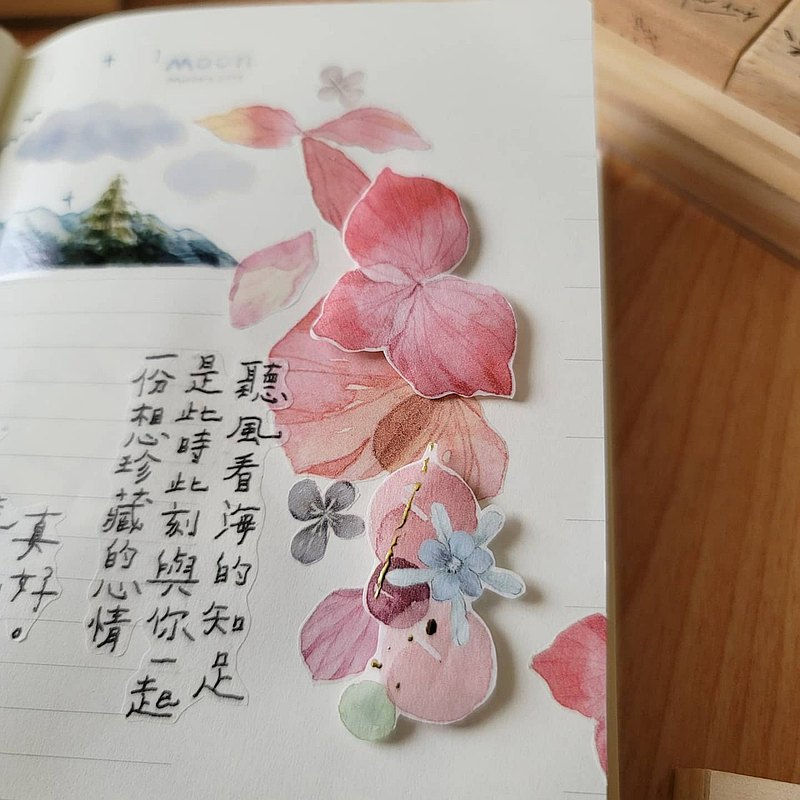 MOON
聽風看海的知足
是此時此刻與你一起
一份想珍藏的心情
真好。